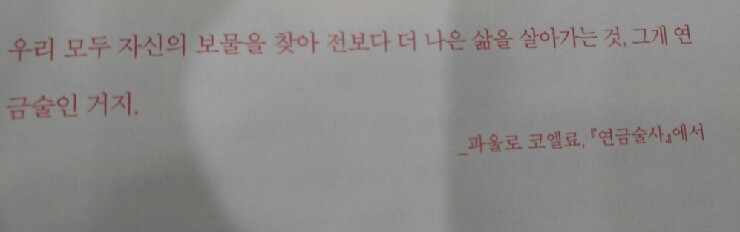 우리 모두 자신의 보물을 찾아 전보다 더 나은 삶을 살아가는 것, 그게 연
금술인 거지.
_파울로 코엘료, 『연금술사』에서